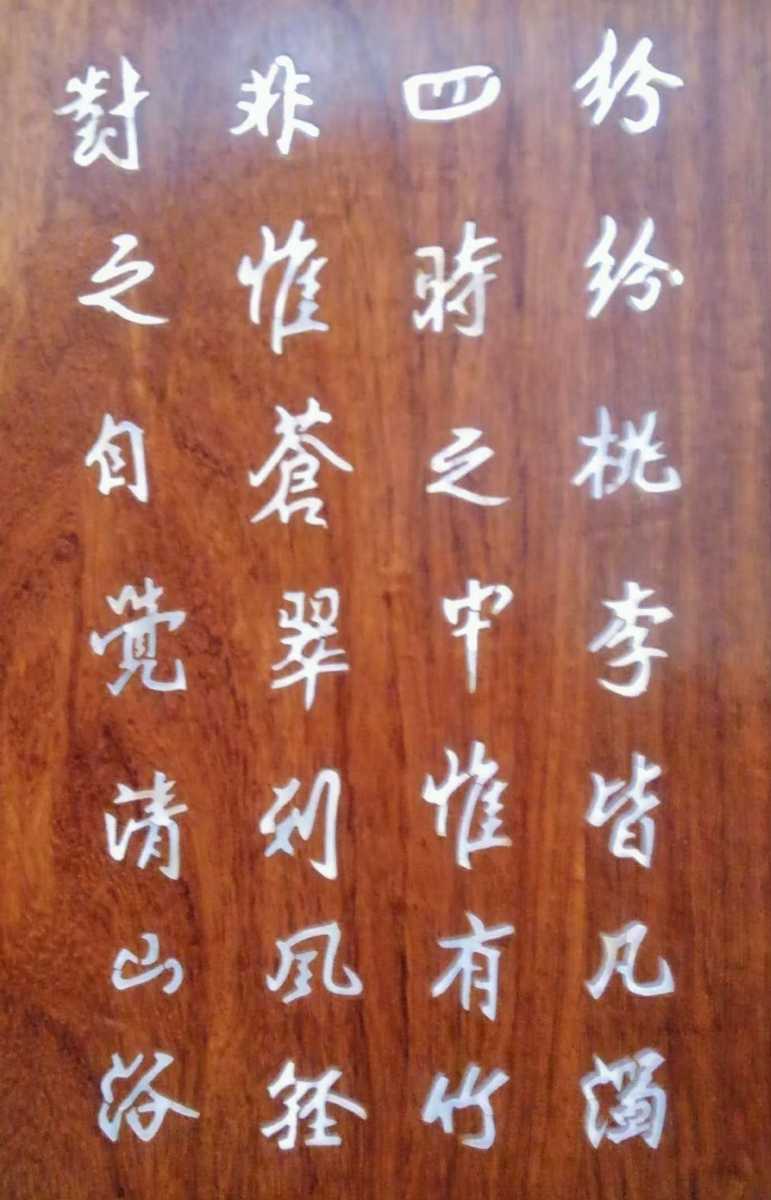 紛紛桃李皆凡濁
四時之中惟有竹
非惟蒼翠列風軽
對之自覺清山浴